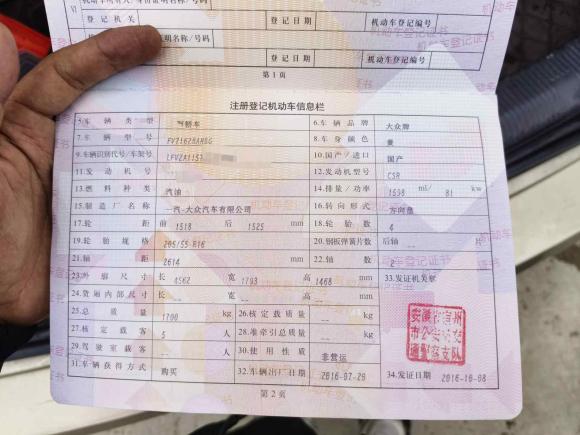 机动车所有人/身份证明名称/号码
登记机关 登记日期 机动车登记编号
明名称/号码
登记日期 机动车登记编号
第1页
注册登记机动车信息栏
5.车辆类型 轿车 6.车辆品牌 大众牌
7.车辆型号 8.车身颜色 黄
9.车辆识别代号/车架号 LFV2A1157 10.国产/进口 国产
11.发动机号 12.发动机型号 CSR
13.燃料种类 汽油 14.排量/功率 1598 ml/ 81 kw
15.制造厂名称 一汽-大众汽车有限公司 16.转向形式 方向盘
17.轮距 前 1518 后 1525 mm 18.轮胎数 4
19.轮胎规格 205/55 R16 20.钢板弹簧片数 后轴 -- 片
21.轴距 2614 mm 22.轴数 2
23.外廓尺寸 长 4562 宽 1793 高 1468 mm 33.发证机关章
24.货厢内部尺寸 长 -- 宽 -- 高 -- mm
25.总质量 1700 kg 26.核定载质量 -- kg
27.核定载客 5 人 28.准牵引总质量 -- kg
29.驾驶室载客 -- 人 30.使用性质 非营运
31.车辆获得方式 购买 32.车辆出厂日期 2016-07-29 34.发证日期 2016-10-08
第2页